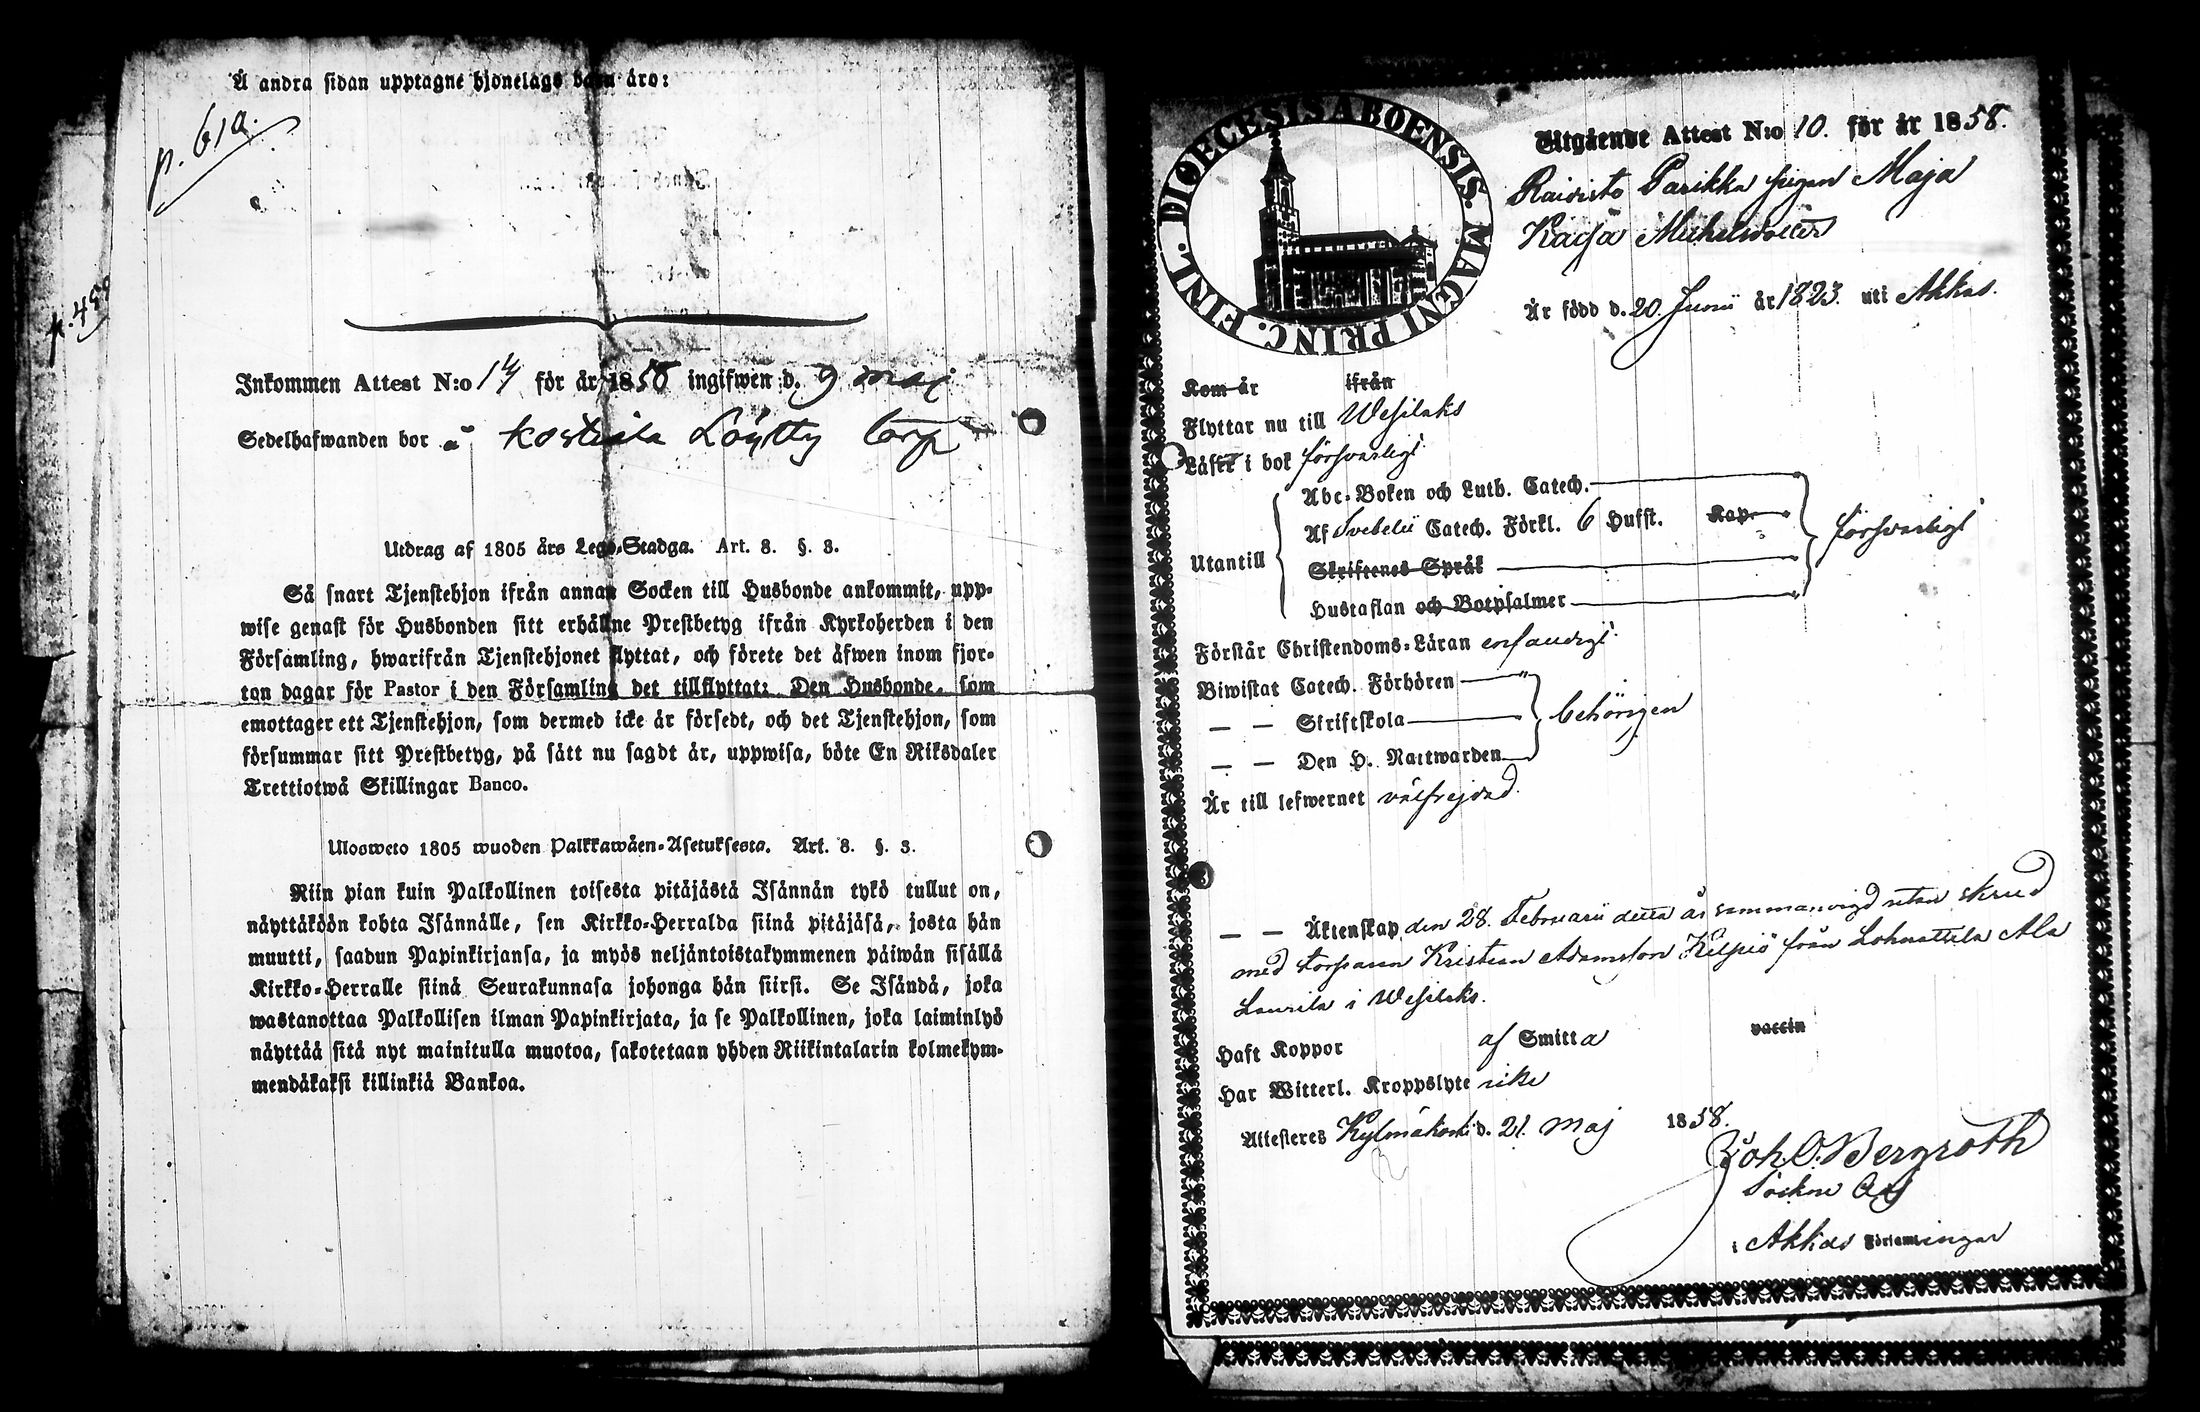 Å andra sidan upptagne hjonelags barn äro:
p. 61a.
p. 459
Inkommen Attest N:o 14 för år 1858 ingifwen d. 9 maj
Sedelhafwanden bor å Kostiala Löytty torp
Utdrag af 1805 års Lego-Stadga. Art. 8. §. 3.
Så snart Tjenstehjon ifrån annan Socken till Husbonde ankommit, upp-
wise genast för Husbonden sitt erhållne Prestbetyg ifrån Kyrkoherden i den
Församling, hwarifrån Tjenstehjonet flyttat, och förete det äfwen inom fjor-
ton dagar för Pastor i den Församling det tillflyttat: Den Husbonde, som
emottager ett Tjenstehjon, som dermed icke är försedt, och det Tjenstehjon, som
försummar sitt Prestbetyg, på sätt nu sagdt är, uppwisa, böte En Riksdaler
Trettiotwå Skillingar Banco.
Ulosweto 1805 wuoden Palkkawäen-Asetuksesta. Art. 8. §. 3.
Niin pian kuin Palkollinen toisesta pitäjästä Isännän tykö tullut on,
näyttäköön kohta Isännälle, sen Kirkko-Herralda siinä pitäjäsä, josta hän
muutti, saadun Papinkirjansa, ja myös neljäntoistakymmenen päiwän sisällä
Kirkko-Herralle siinä Seurakunnasa johonga hän siirsi. Se Isändä, joka
wastanottaa Palkollisen ilman Papinkirjata, ja se Palkollinen, joka laiminlyö
näyttää sitä nyt mainitulla muotoa, sakotetaan yhden Riikintalarin kolmekym-
mendäkaksi killinkiä Bankoa.
DIOECESIS ABOENSIS. MAGNI PRINC. FINL.
Utgående Attest N:o 10. för år 1858.
Raivisto Parikka pigan Maja
Kaisa Michelsdotter
Är född d. 20. Junii år 1823. uti Akkas.
Kom år ifrån
Flyttar nu till Wesilaks
Läser i bok försvarligt
Abc-Boken och Luth. Catech.
Af Svebelii Catech. Förkl. 6 Hufst. Kap.
Utantill försvarligt
Skriftenes Språk
Hustaflan och Botpsalmer
Förstår Christendoms-Läran enfaldigt.
Biwistat Catech. Förhören
— — Skriftskola behörigen
— — Den H. Nattwarden
Är till lefwernet välfrejdad.
— — Äktenskap den 28. Februarii detta år sammanvigd utan skrud
med torparen Kristian Adamsson Kelpiö från Lohnattila Ala
Laurila i Wesilaks.
Haft Koppor af Smitta vaccin
Har Witterl. Kroppslyte icke
Attesteras Kylmäkoski d. 21. Maj 1858.
Joh. O. Bergroth
Sockne Adj
i Akkas Församlingar